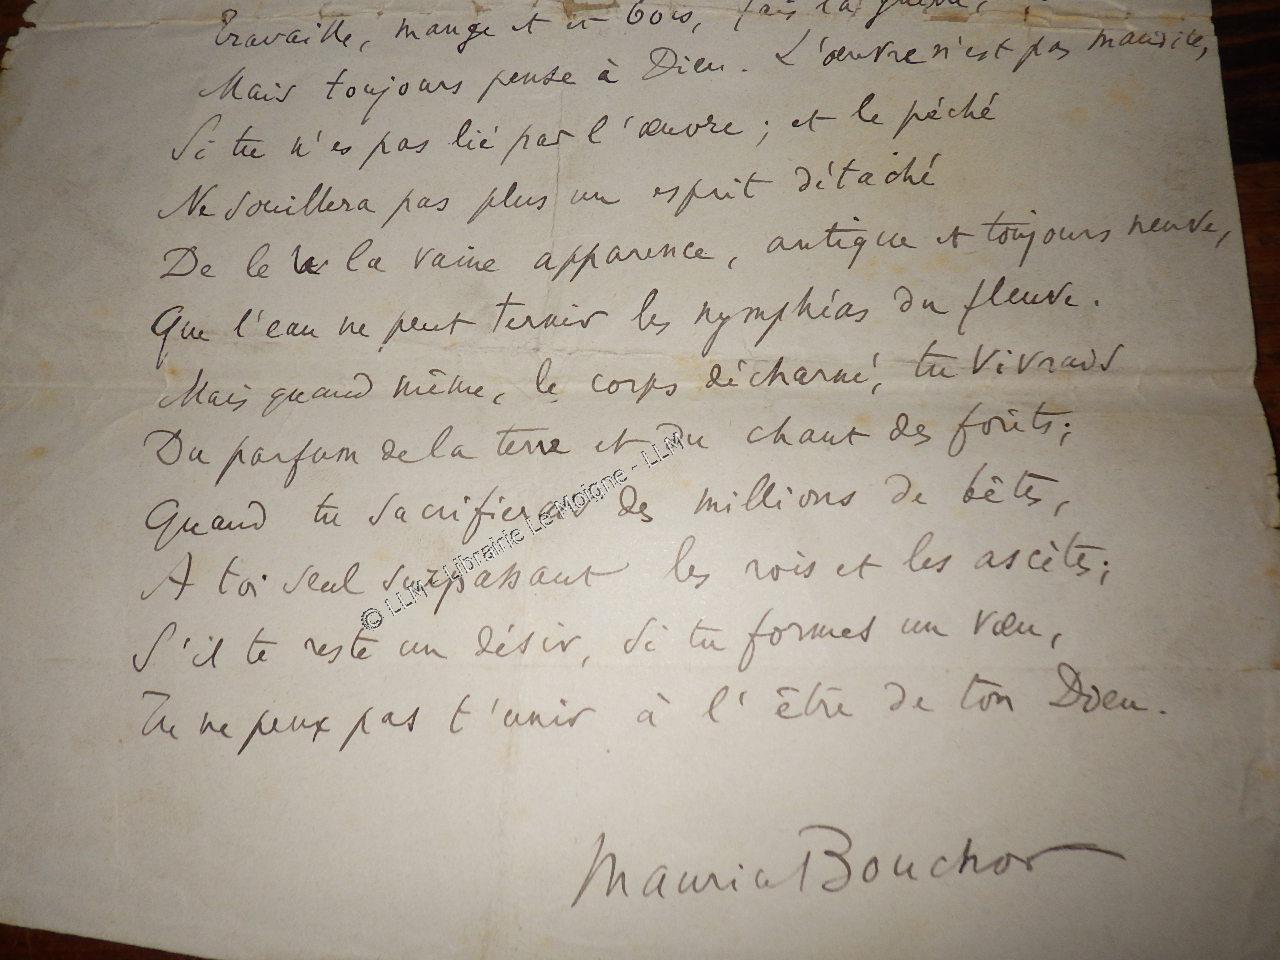 Travaille, mange et bois, fais la guerre,
Mais toujours pense à Dieu. L'œuvre n'est pas maudite,
Si tu n'es pas lié par l'œuvre ; et le péché
Ne souillera pas plus un esprit détaché
De le la vaine apparence, antique et toujours neuve,
Que l'eau ne peut ternir les nymphéas du fleuve.
Mais quand même, le corps décharné, tu vivrais
Du parfum de la terre et du chant des forêts ;
Quand tu sacrifierais des millions de bêtes,
A toi seul surpassant les rois et les ascètes ;
S'il te reste un désir, si tu formes un vœu,
Tu ne peux pas t'unir à l'être de ton Dieu.
Maurice Bouchor
© LLM - Librairie Le Moigne - LLM